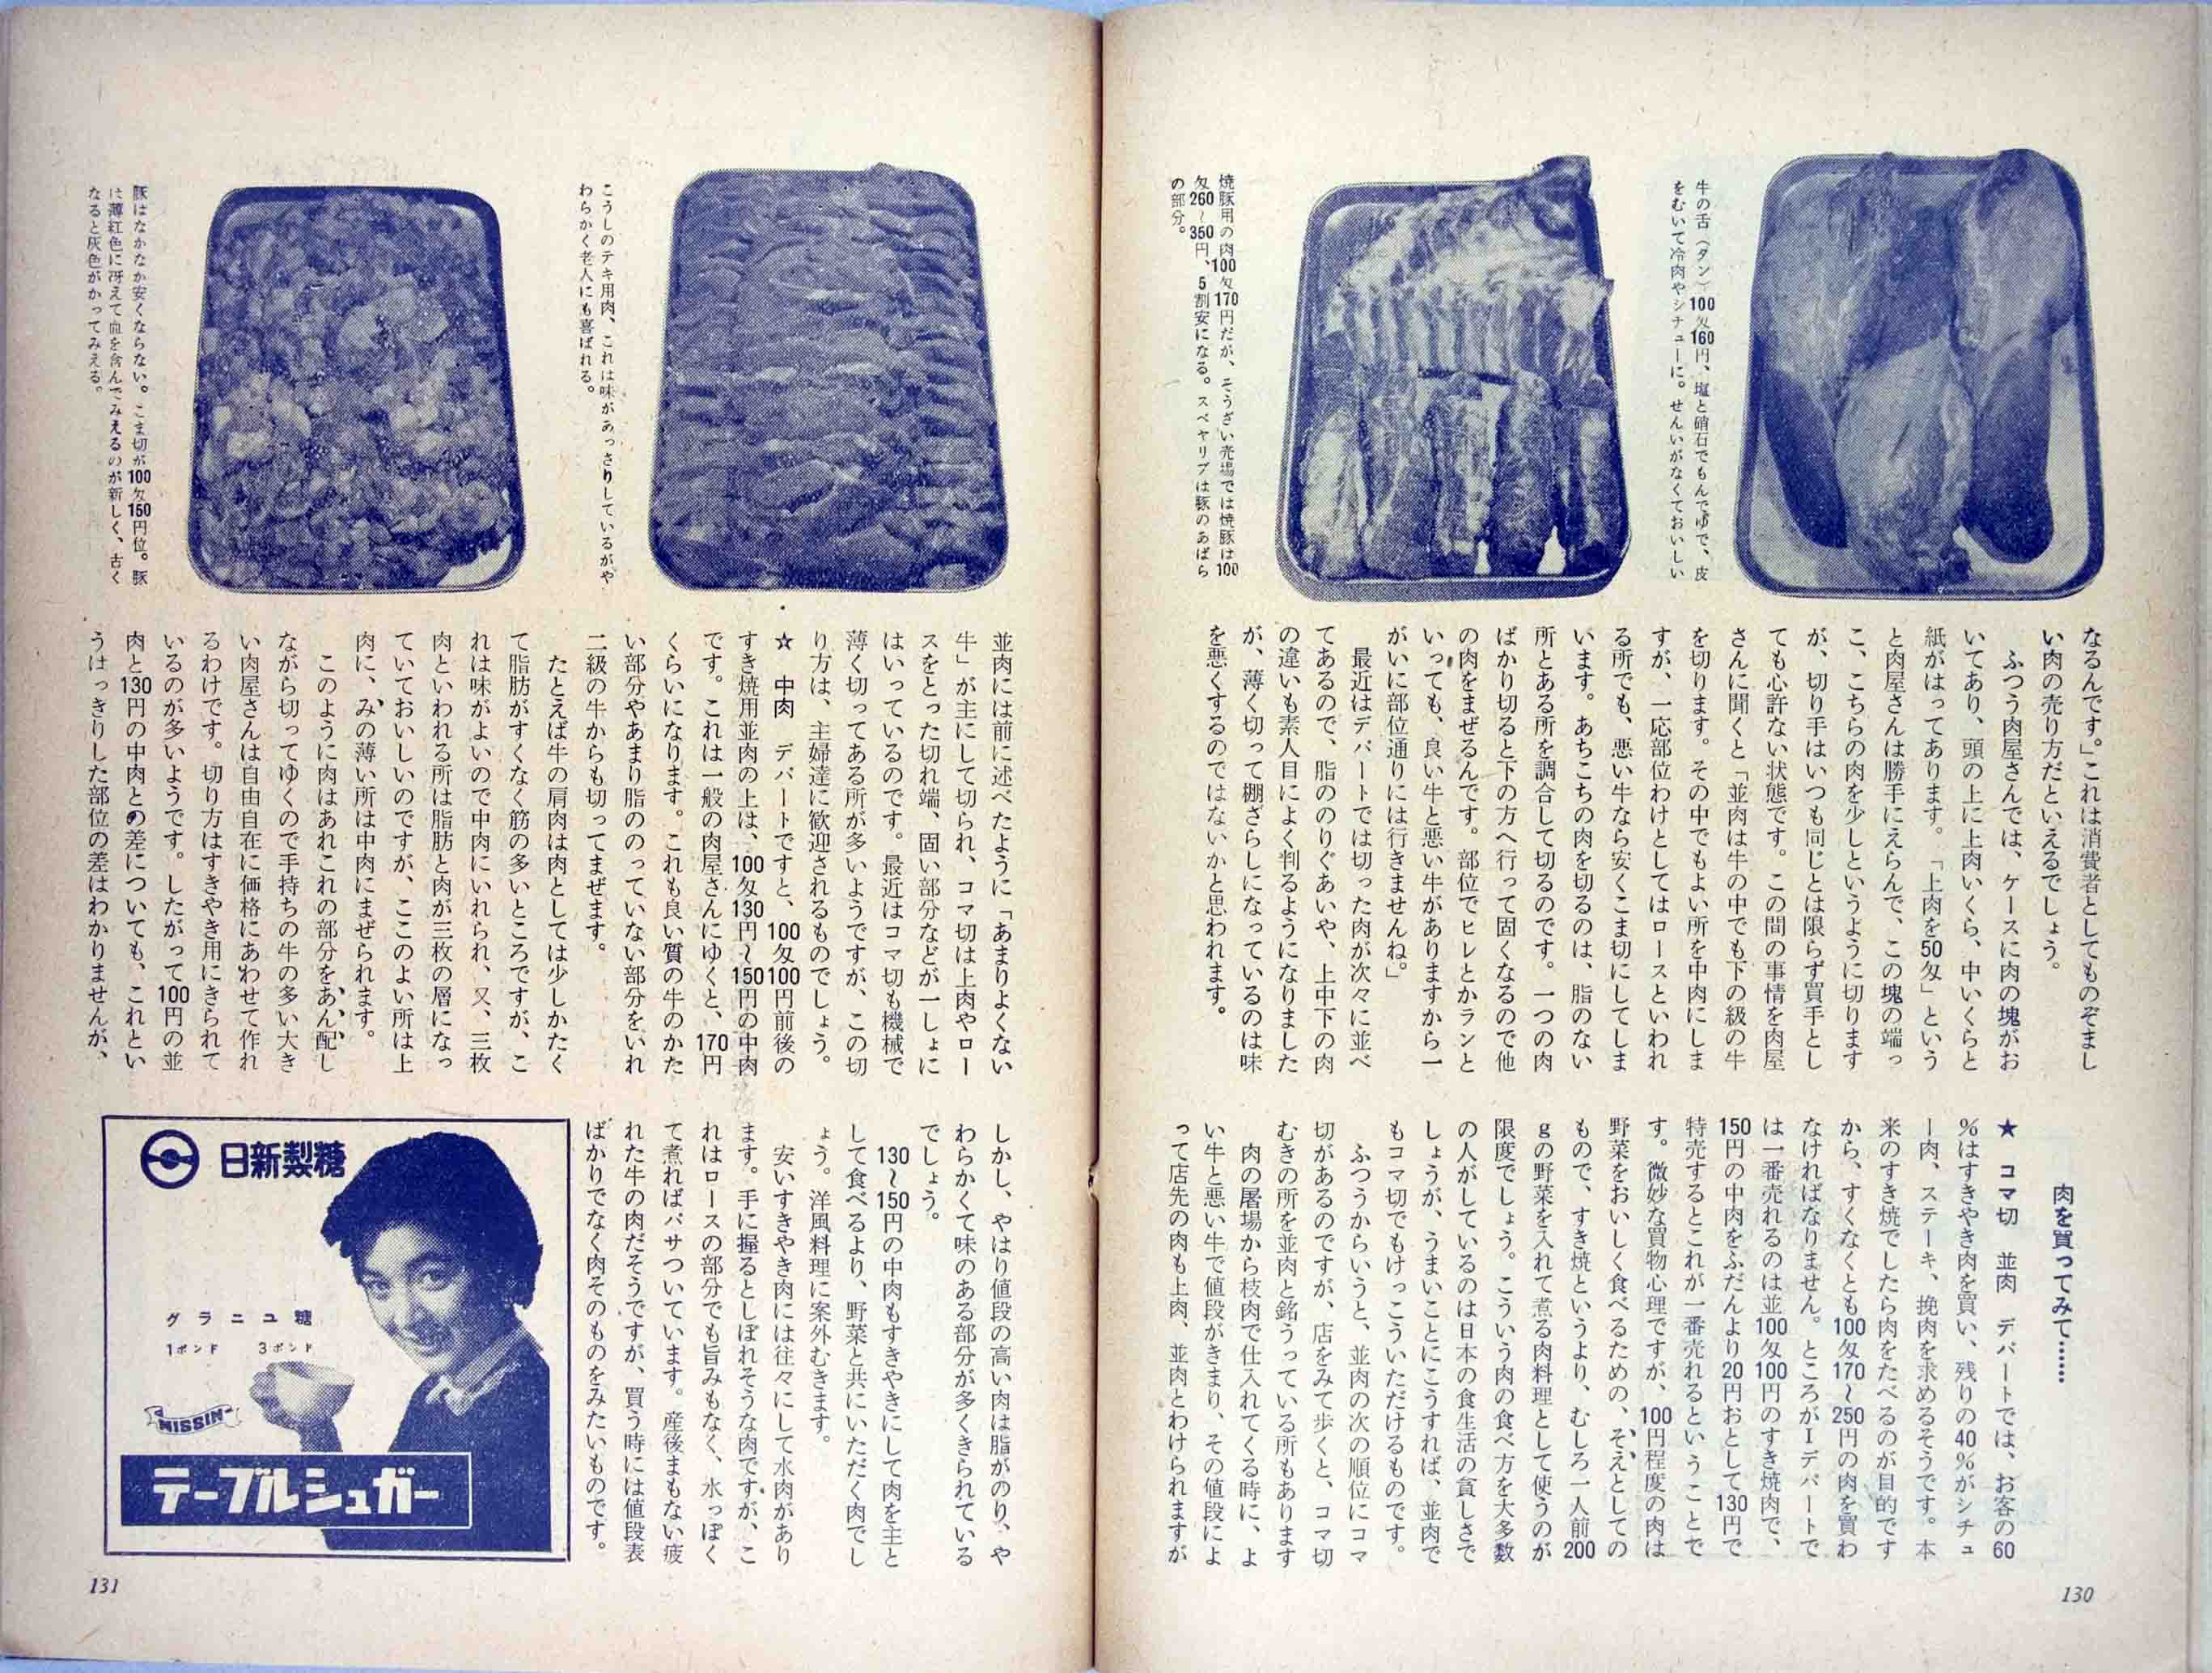 牛の舌（タン）100匁160円、塩と硝石でもんでゆで、皮
をむいて冷肉やシチューに。せんいがなくておいしい
焼豚用の肉100匁170円だが、そうざい売場では焼豚は100
匁260～350円、5割安になる。スペヤリブは豚のあばら
の部分。
なるんです。」これは消費者としてものぞまし
い肉の売り方だといえるでしょう。
ふつう肉屋さんでは、ケースに肉の塊がお
いてあり、頭の上に上肉いくら、中いくらと
紙がはってあります。「上肉を50匁」という
と肉屋さんは勝手にえらんで、この塊の端っ
こ、こちらの肉を少しというように切ります
が、切り手はいつも同じとは限らず買手とし
ても心許ない状態です。この間の事情を肉屋
さんに聞くと「並肉は牛の中でも下の級の牛
を切ります。その中でもよい所を中肉にしま
すが、一応部位わけとしてはロースといわれ
る所でも、悪い牛なら安くこま切にしてしま
います。あちこちの肉を切るのは、脂のない
所とある所を調合して切るのです。一つの肉
ばかり切ると下の方へ行って固くなるので他
の肉をまぜるんです。部位でヒレとかランと
いっても、良い牛と悪い牛がありますから一
がいに部位通りには行きませんね。」
最近はデパートでは切った肉が次々に並べ
てあるので、脂ののりぐあいや、上中下の肉
の違いも素人目によく判るようになりました
が、薄く切って棚ざらしになっているのは味
を悪くするのではないかと思われます。
肉を買ってみて……
★ コマ切 並肉 デパートでは、お客の60
％はすきやき肉を買い、残りの40％がシチュ
ー肉、ステーキ、挽肉を求めるそうです。本
来のすき焼でしたら肉をたべるのが目的です
から、すくなくとも100匁170～250円の肉を買わ
なければなりません。ところがIデパートで
は一番売れるのは並100匁100円のすき焼肉で、
150円の中肉をふだんより20円おとして130円で
特売するとこれが一番売れるということで
す。微妙な買物心理ですが、100円程度の肉は
野菜をおいしく食べるための、そえとしての
もので、すき焼というより、むしろ一人前200
gの野菜を入れて煮る肉料理として使うのが
限度でしょう。こういう肉の食べ方を大多数
の人がしているのは日本の食生活の貧しさで
しょうが、うまいことにこうすれば、並肉で
もコマ切でもけっこういただけるものです。
ふつうからいうと、並肉の次の順位にコマ
切があるのですが、店をみて歩くと、コマ切
むきの所を並肉と銘うっている所もあります
肉の屠場から枝肉で仕入れてくる時に、よ
い牛と悪い牛で値段がきまり、その値段によ
って店先の肉も上肉、並肉とわけられますが
130
こうしのテキ用肉、これは味があっさりしているがや
わらかく老人にも喜ばれる。
豚はなかなか安くならない。こま切が100匁150円位。豚
は薄紅色に冴えて血を含んでみえるのが新しく、古く
なると灰色がかってみえる。
並肉には前に述べたように「あまりよくない
牛」が主にして切られ、コマ切は上肉やロー
スをとった切れ端、固い部分などが一しょに
はいっているのです。最近はコマ切も機械で
薄く切ってある所が多いようですが、この切
り方は、主婦達に歓迎されるものでしょう。
★ 中肉 デパートですと、100匁100円前後の
すき焼用並肉の上は、100匁130円～150円の中肉
です。これは一般の肉屋さんにゆくと、170円
くらいになります。これも良い質の牛のかた
い部分やあまり脂ののっていない部分をいれ
二級の牛からも切ってまぜます。
たとえば牛の肩肉は肉としては少しかたく
て脂肪がすくなく筋の多いところですが、こ
れは味がよいので中肉にいれられ、又、三枚
肉といわれる所は脂肪と肉が三枚の層になっ
ていておいしいのですが、ここのよい所は上
肉に、みの薄い所は中肉にまぜられます。
このように肉はあれこれの部分をあん配し
ながら切ってゆくので手持ちの牛の多い大き
い肉屋さんは自由自在に価格にあわせて作れ
るわけです。切り方はすきやき用にきられて
いるのが多いようです。したがって100円の並
肉と130円の中肉との差についても、これとい
うはっきりした部位の差はわかりませんが、
しかし、やはり値段の高い肉は脂がのり、や
わらかくて味のある部分が多くきられている
でしょう。
130～150円の中肉もすきやきにして肉を主と
して食べるより、野菜と共にいただく肉でし
ょう。洋風料理に案外むきます。
安いすきやき肉には往々にして水肉があり
ます。手に握るとしぼれそうな肉ですが、こ
れはロースの部分でも旨みもなく、水っぽく
て煮ればパサついています。産後まもない疲
れた牛の肉だそうですが、買う時には値段表
ばかりでなく肉そのものをみたいものです。
日新製糖
グラニュ糖
1ポンド 3ポンド
NISSIN
テーブルシュガー
131